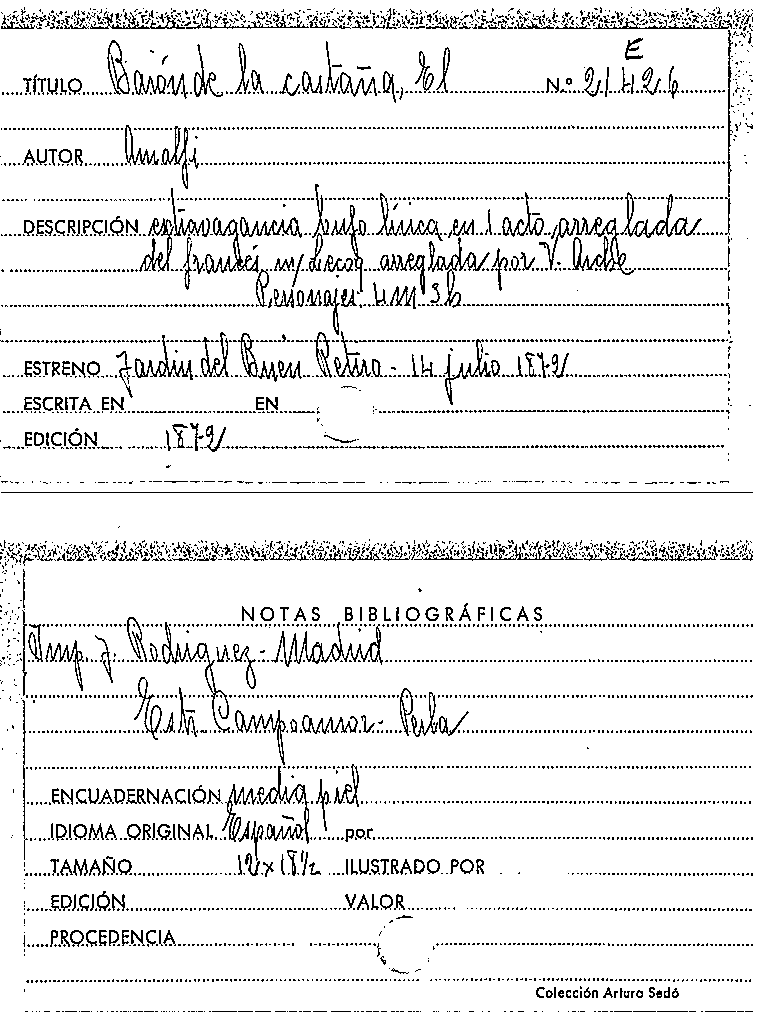 E
TÍTULO Barón de la castaña, El N.º 21426
AUTOR Amalfi
DESCRIPCIÓN extravagancia bufo lírica en 1 acto arreglada
del francés m/ Lecoq arreglada por V.
Personajes 4M 3h
ESTRENO Jardin del Buen Retiro - 14 julio 1872
ESCRITA EN EN
EDICIÓN 1872
NOTAS BIBLIOGRÁFICAS
Imp. J. Rodriguez - Madrid
Estr. Campoamor -
ENCUADERNACIÓN media piel
IDIOMA ORIGINAL Español por
TAMAÑO 12 x 18½ ILUSTRADO POR
EDICIÓN VALOR
PROCEDENCIA
Colección Arturo Sedó